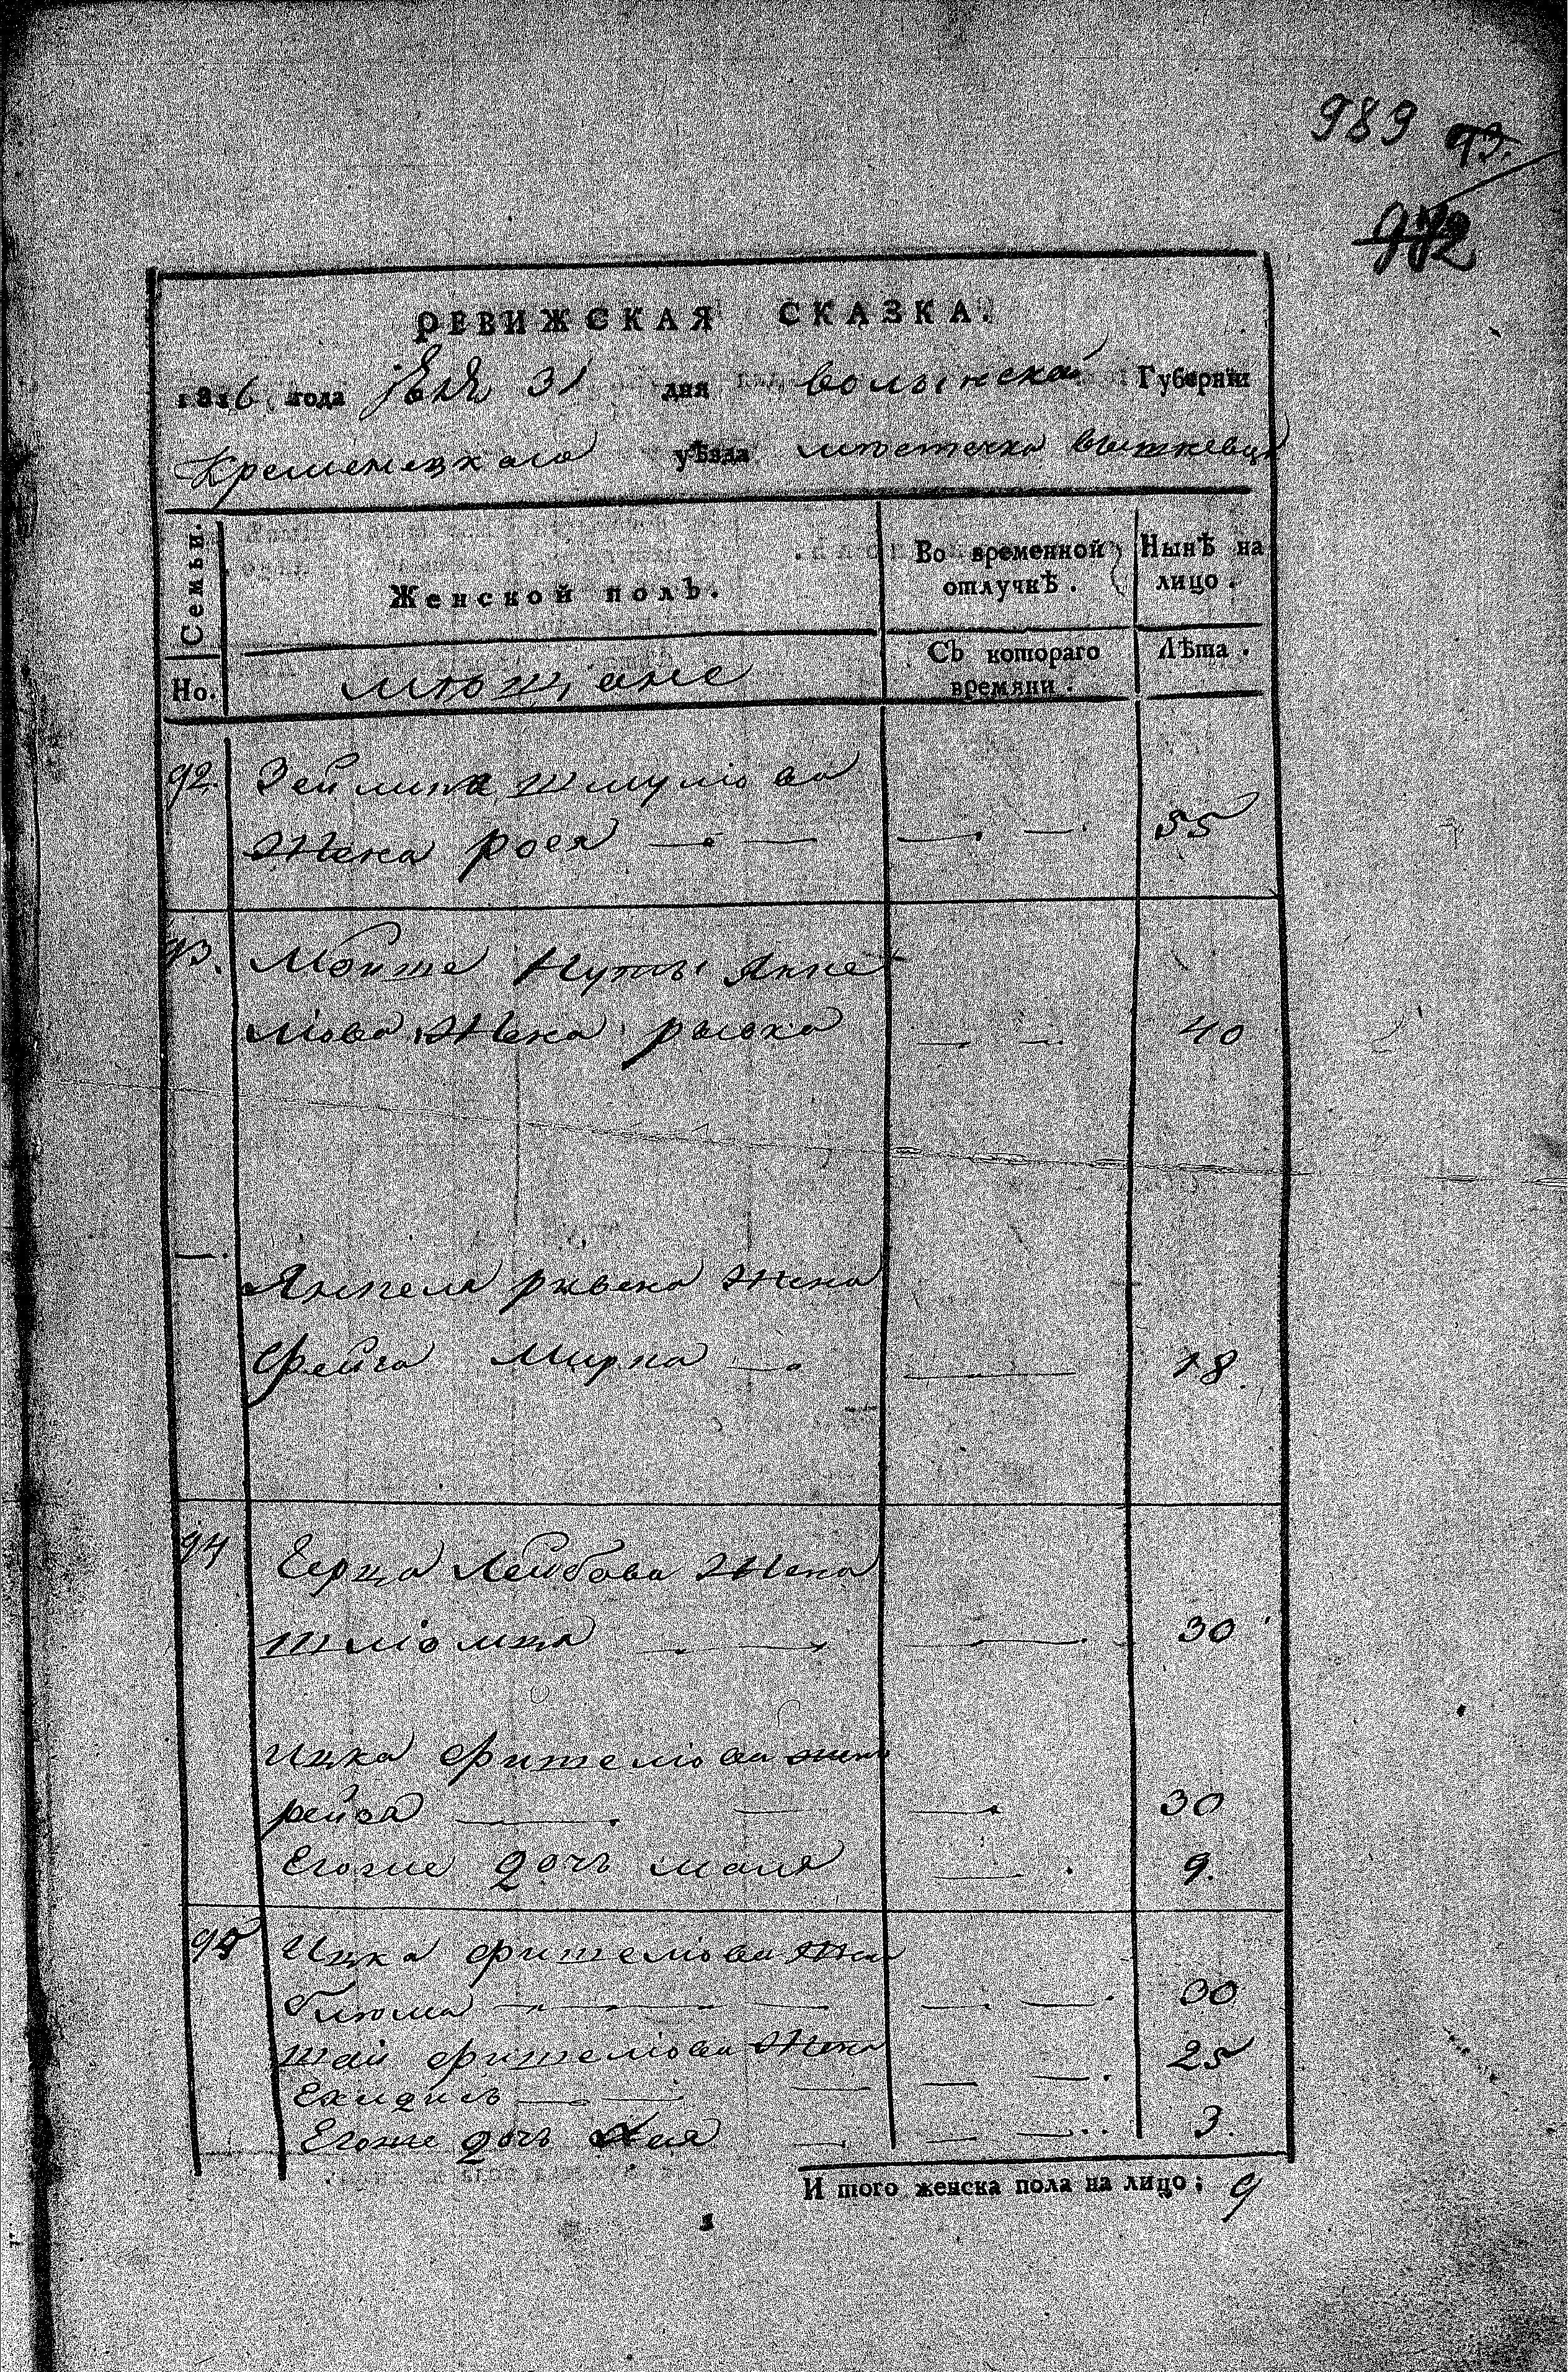 983 93.
972
РЕВИЖСКАЯ СКАЗКА.
1816 года 31 дня волынской Губерніи
Кременецкаго уѣзда мѣстечка вышневца
Семьи.
Но.
Женской полъ.
мѣщане
Во временной отлучкѣ.
Съ котораго времяни.
Нынѣ на лицо.
Лѣта.
92. Зейлика шмулiова
Жена роея 55
93. Мошка Нуты Янке
лiова Жена рывка 40
Янкеля жена
Фейга Мирка 18
94 Герца Лейбова Жена
30
Ицка фишелiова жена
рейза 30
Егоже дочь маля 9.
95 Ицка фишелiова
30
шаи фишелiова Жена 25
Егоже дочь Хая 3.
И того женска пола на лицо; 9